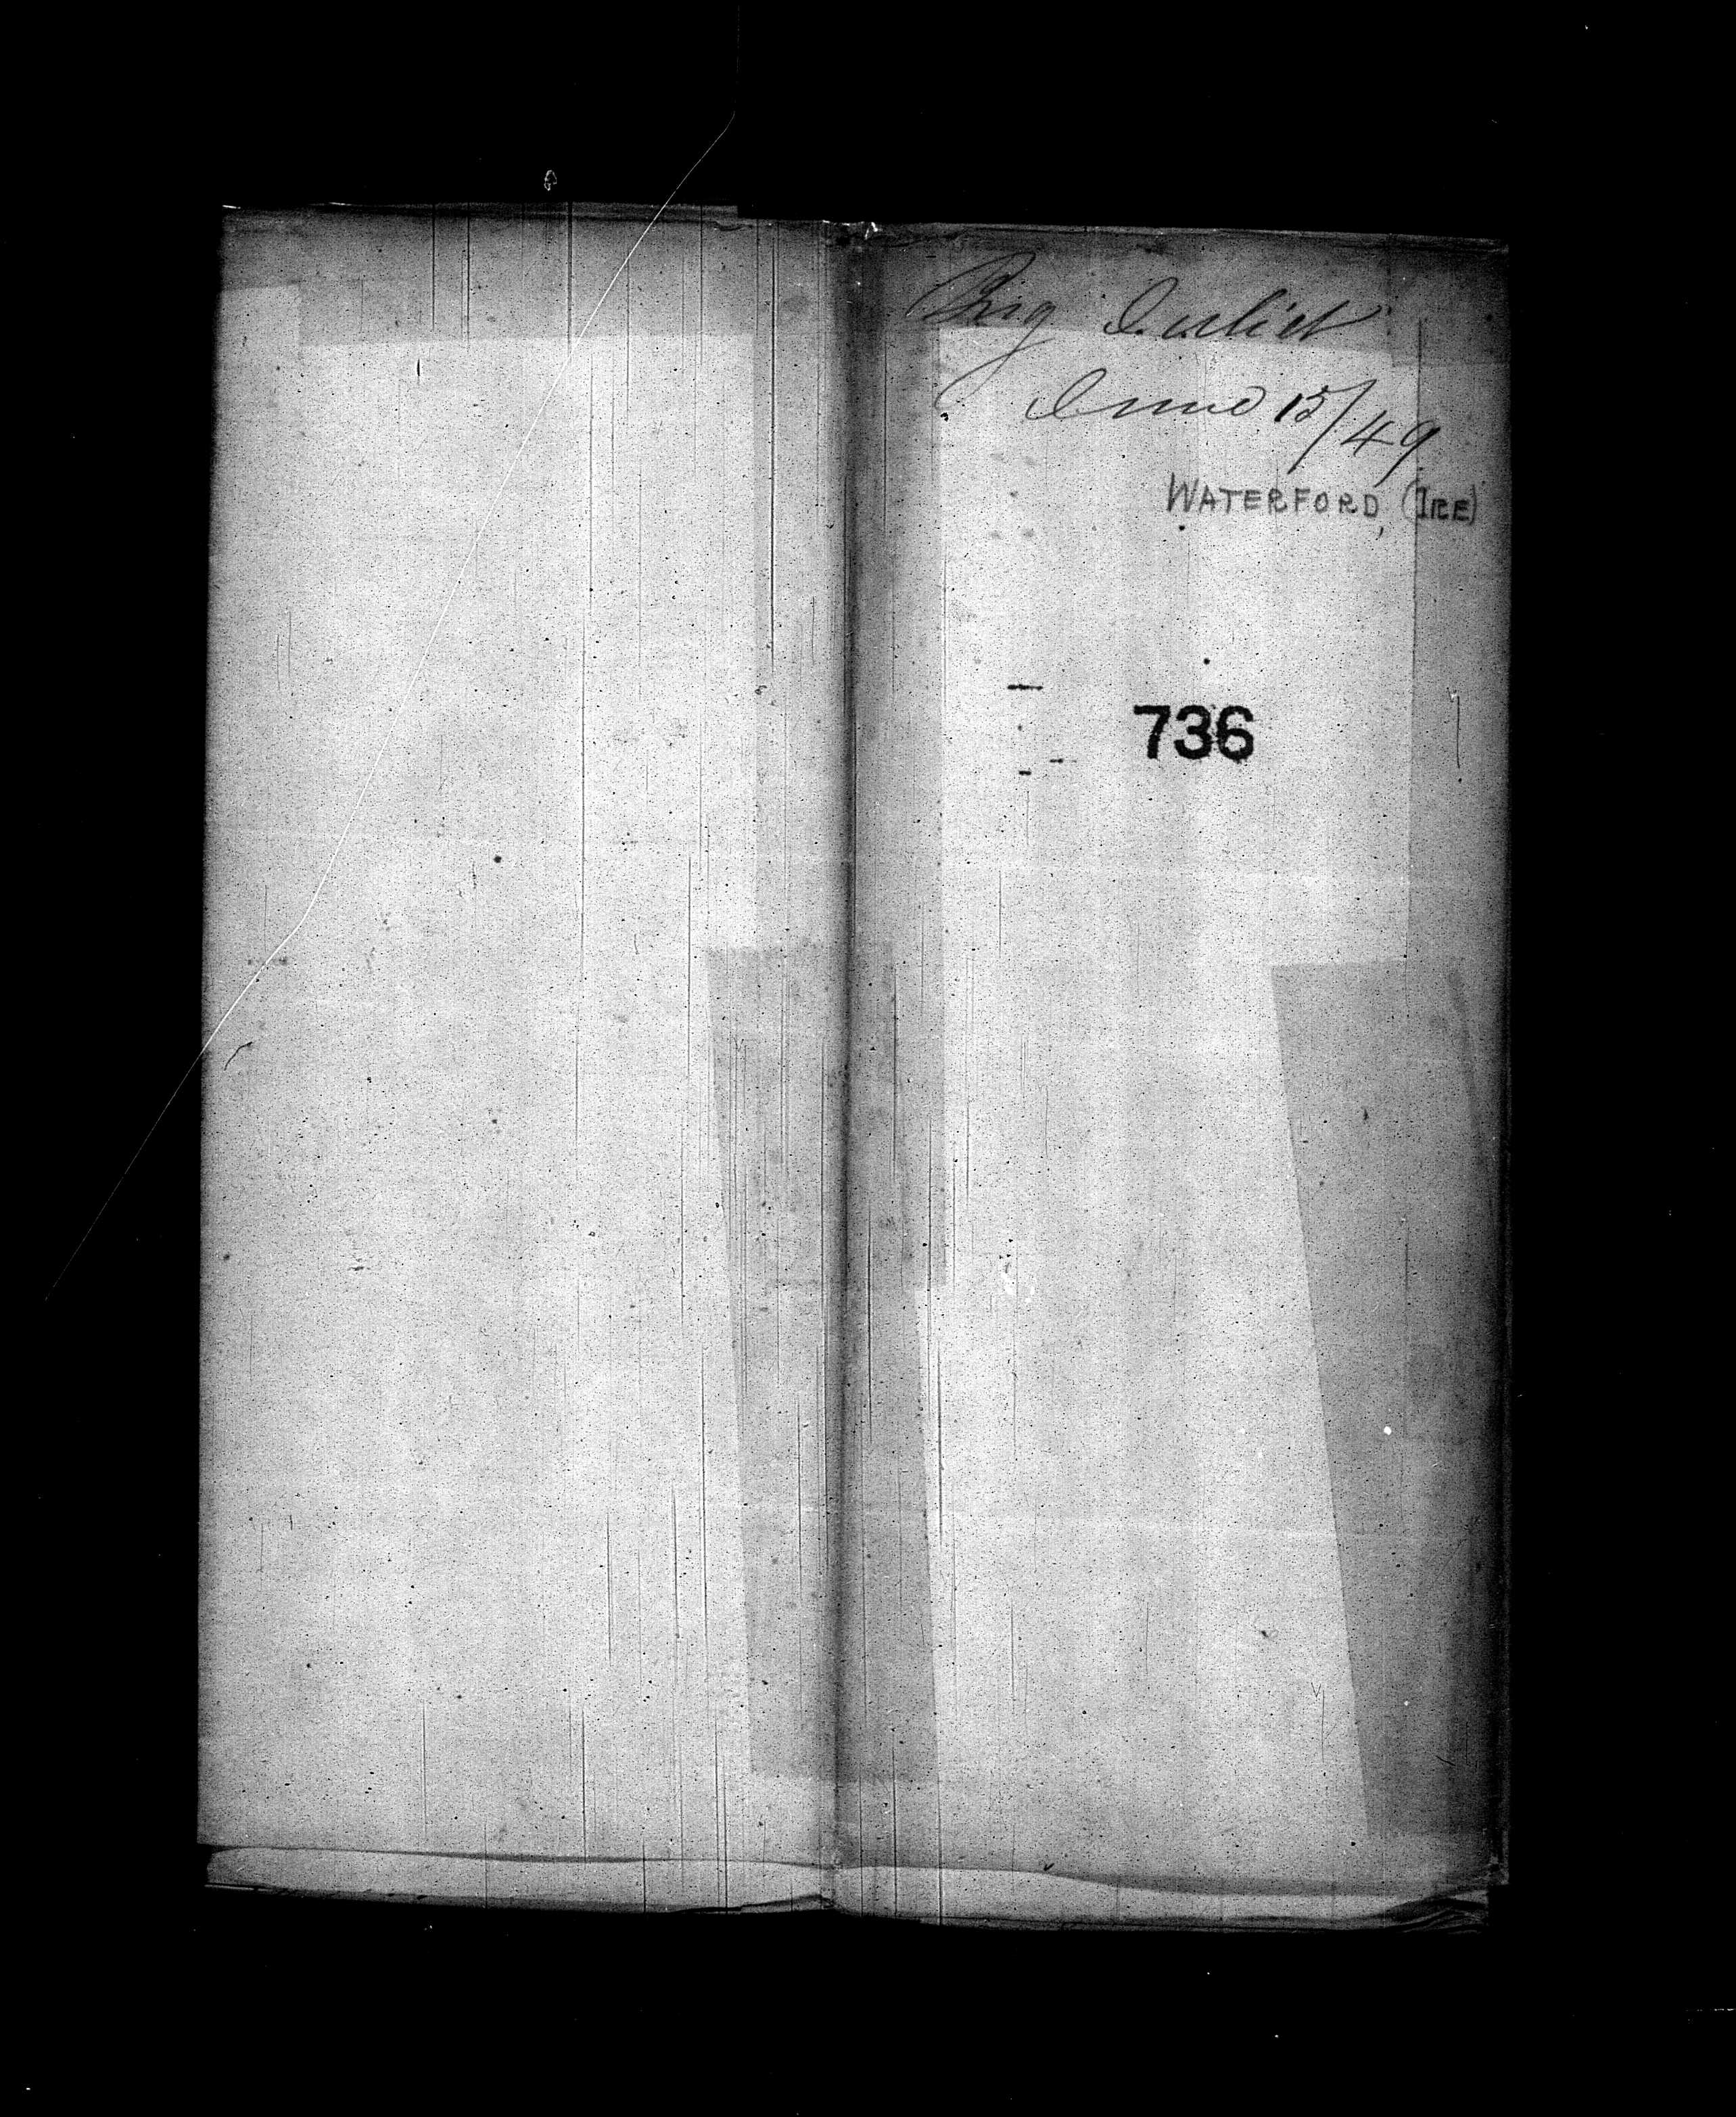 Brig Juliet
June 15/49
WATERFORD, (IRE)
736